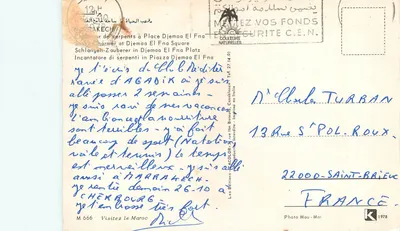 de serpents à Place Djemaa El Fna
at Djemaa El Fna Square
Schlangen-Zauberer in Djemaa El Fna Platz
Incantatore di serpenti in Piazza Djemaa El Fna
COULEURS
NATURELLES
EZ VOS FONDS
SECURITE C.E.N.
je t'écris du Club Médite
rannée d'AGADIR où je suis
allé passer 2 semaines -
je suis ravi de mes vacances
l'ambiance la nourriture
sont terribles - y'a fait
beaucoup de sport (Natation
voile et tennis) le temps
est merveilleux - je suis allé
aussi à MARRAKECH -
je rentre demain 26-10 à
CHERBOURG
je t'embrasse très fort.
Mr Charles TURBAN
13 RUE St POL. ROUX.
22000-SAINT-BRIEUC
FRANCE.
M 666 Visitez le Maroc
Photo
K 1978